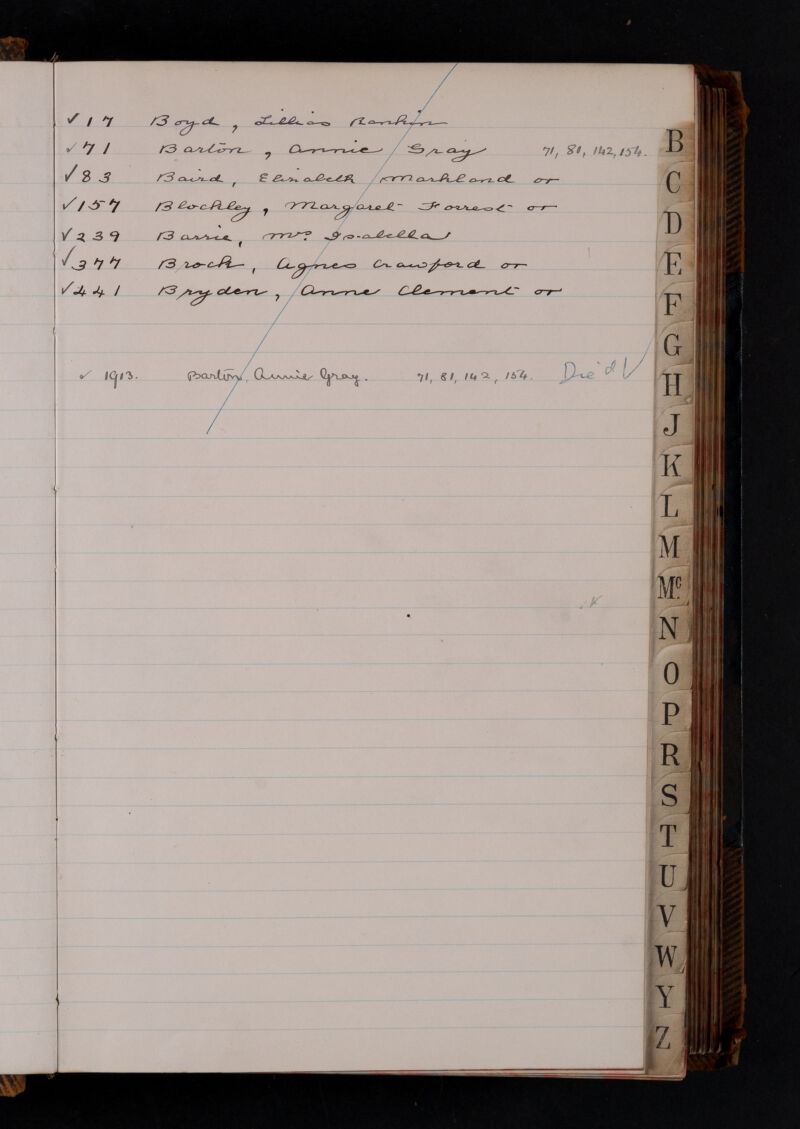 ✓ 17 Boyd, Lillias Rankin
✓ 71 Barton, Annie Gray 71, 81, 142, 154.
✓ 83 Baird, Elizabeth Markland or
✓ 157 Blockley, Margaret Forrest or
✓ 239 Barrie, Mrs Isabella
✓ 377 Brock, Agnes Crawford or
✓ 441 Bryden, Anne Clement or
✓ 1913. Barton, Annie Gray. 71, 81, 142, 154. Die'd ✓
B
C
D
E
F
G
H
J
K
L
M
Mc.
N
O
P
R
S
T
U
V
W
Y
Z